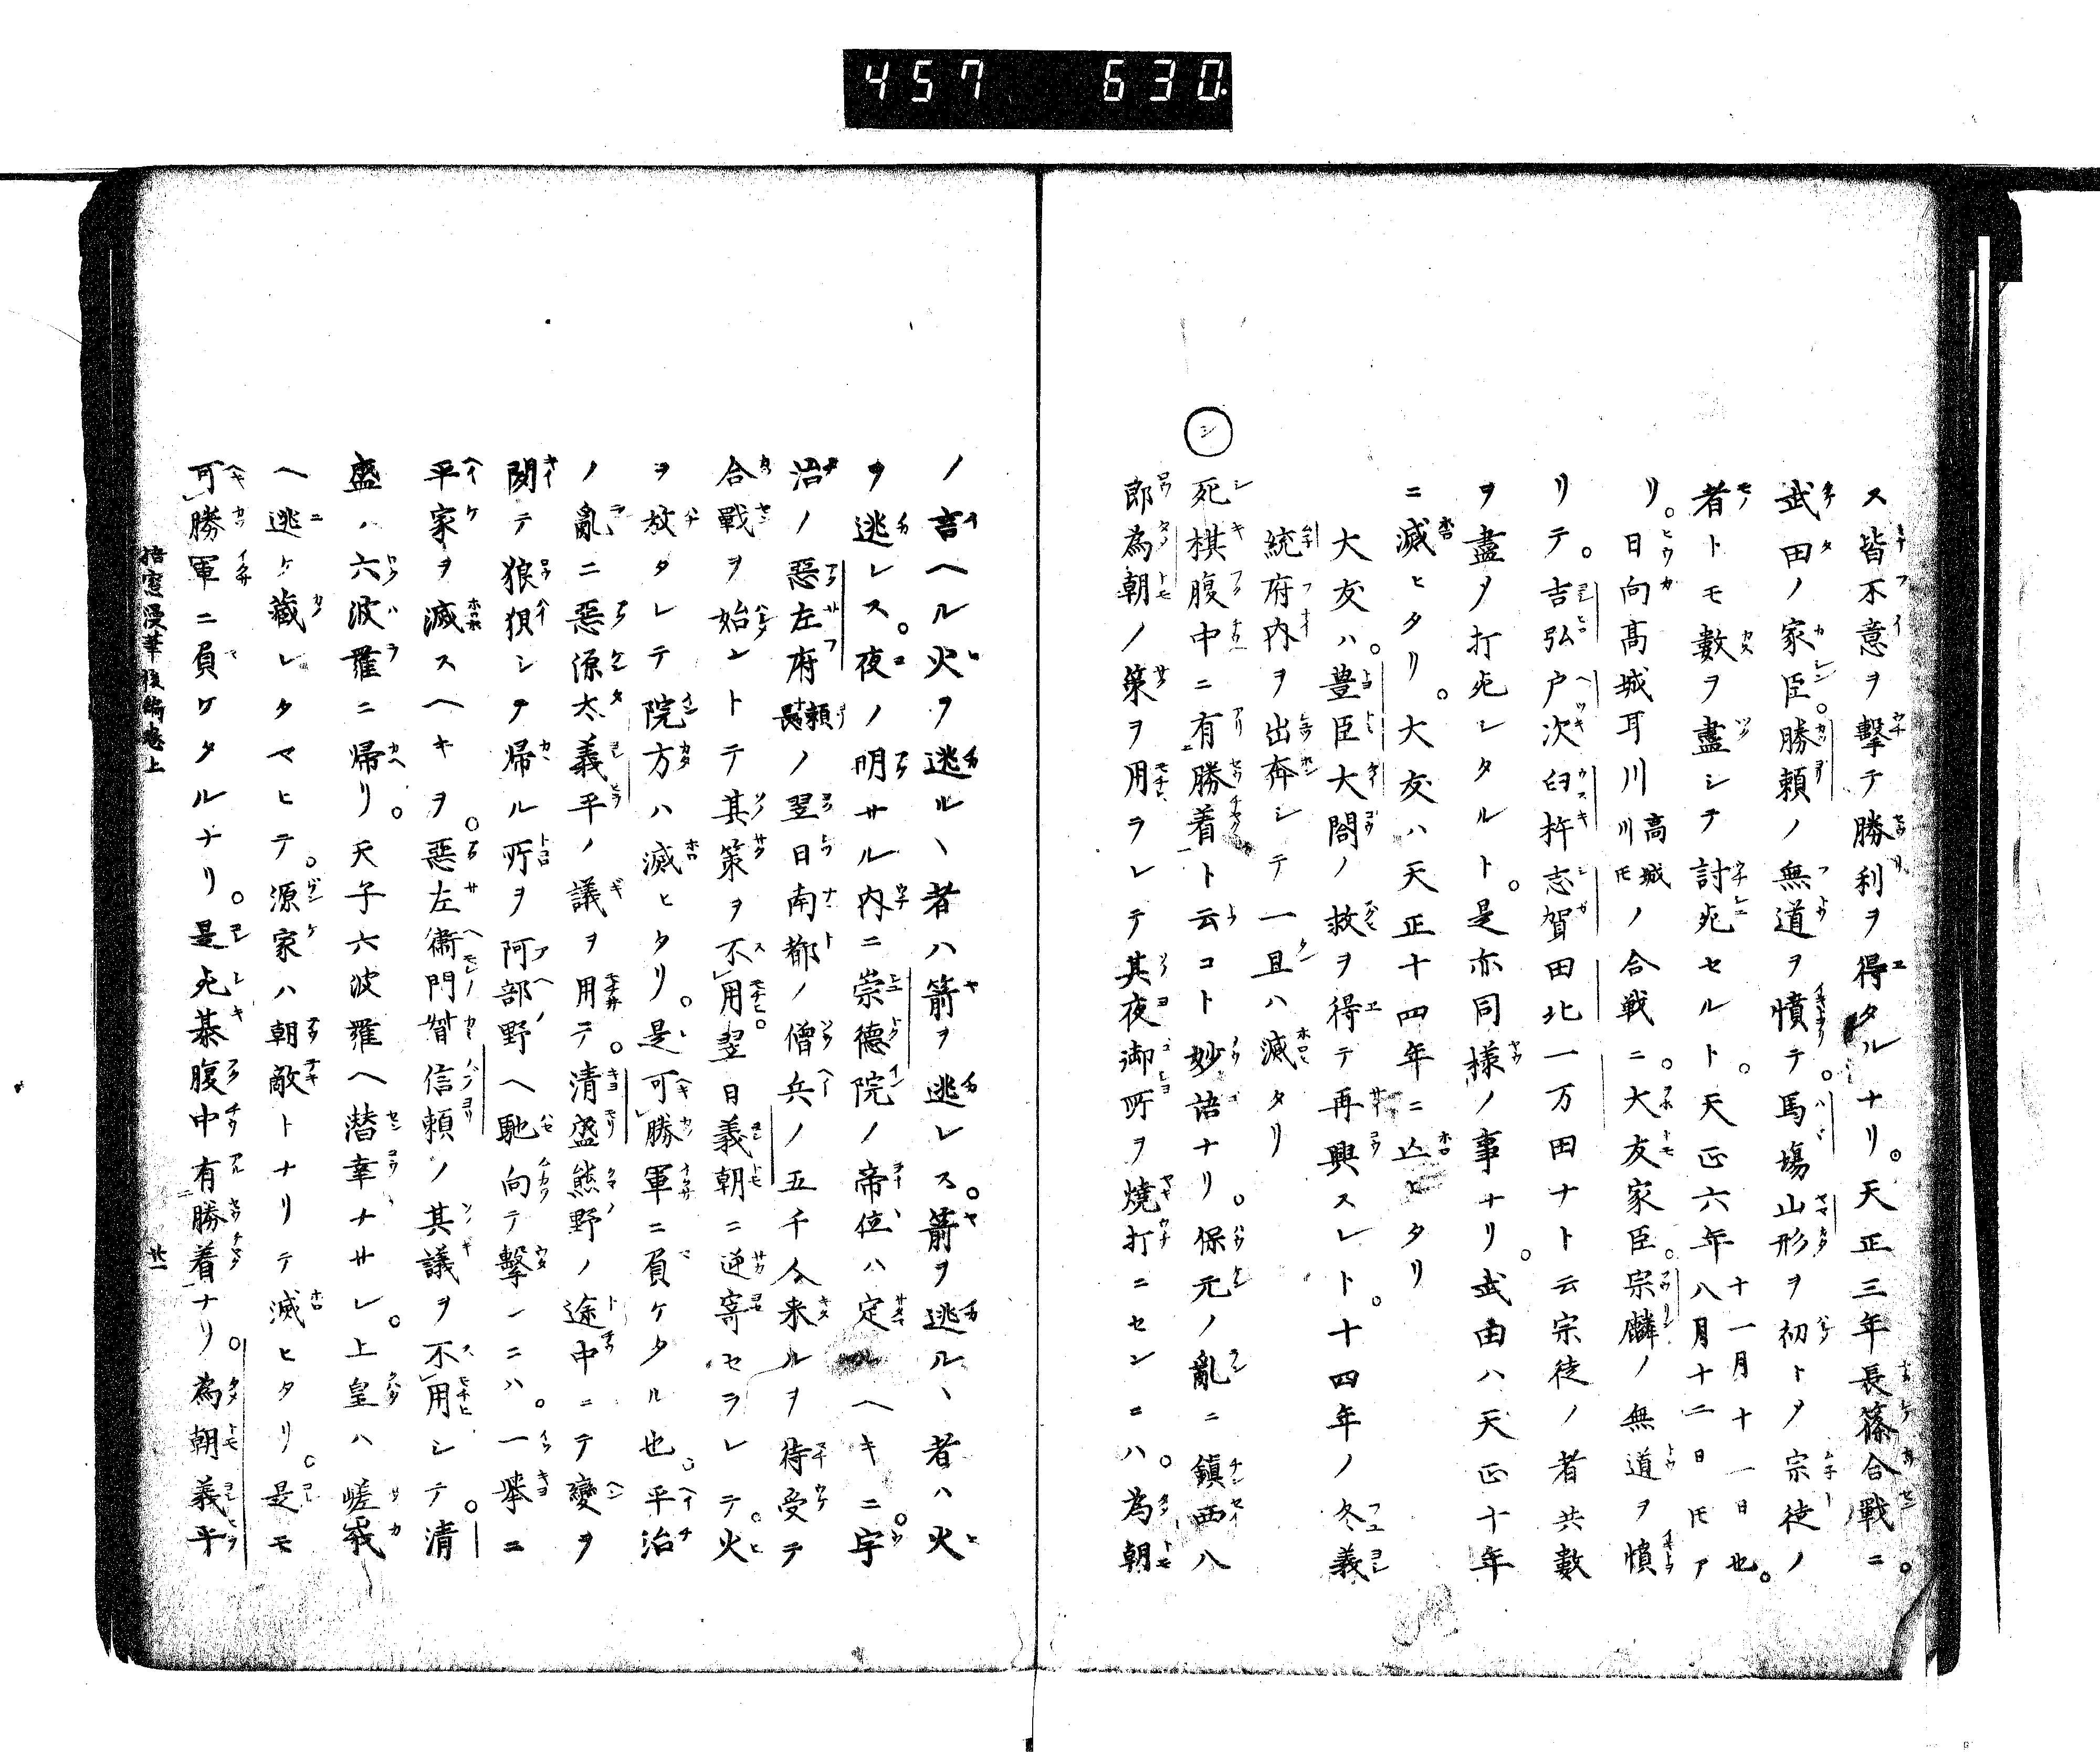 457 630
ス皆不意ヲ擊テ勝利ヲ得タルナリ。天正三年長篠合戰ニ。
武田ノ家臣。勝頼ノ無道ヲ憤テ。馬場山形ヲ初トメ宗徒ノ
者トモ數ヲ盡シテ討死セルト。天正六年八月十二日モア 十一月十一日也。
リ。日向髙城耳川 高城川モ ノ合戦ニ。大友家臣。宗麟ノ無道ヲ憤
リテ。吉弘戸次臼杵志賀田北一万田ナト云宗徒ノ者共數
ヲ盡メ打死レタルト。是亦同様ノ事ナリ。武田ハ天正十年
ニ滅ヒタリ。大友ハ天正十四年ニ亾ヒタリ
大友ハ。豊臣大閤ノ救ヲ得テ再興スレト。十四年ノ冬義
統府内ヲ出奔シテ一旦ハ滅タリ
シ
死棋腹中ニ有勝着ト云コト妙語ナリ。保元ノ亂ニ鎮西八
郎為朝ノ策ヲ用ラレテ其夜御所ヲ燒打ニセンニハ。為朝
ノ言ヘル火ヲ逃ルヽ者ハ箭ヲ逃レス。箭ヲ逃ルヽ者ハ火
ヲ逃レス。夜ノ明サル内ニ崇德院ノ帝位ハ定ルヘキニ。宇
治ノ惡左府 頼長 ノ翌日南都ノ僧兵ノ五千人来ルヲ待受テ
合戰ヲ始ントテ其策ヲ不用。翌日義朝ニ逆寄セラレテ。火
ヲ放タレテ院方ハ滅ヒタリ。是可勝軍ニ負ケタル也。平治
ノ亂ニ惡源太義平ノ議ヲ用テ。清盛熊野ノ途中ニテ變ヲ
聞テ狼狽シテ帰ル所ヲ阿部野ヘ馳向テ擊ンニハ。一擧ニ
平家ヲ滅スヘキヲ。惡左衞門督信頼ノ其議ヲ不用シテ。清
盛ノ六波羅ニ帰リ。天子六波羅ヘ潜幸ナサレ。上皇ハ嵯峩
ヘ逃ケ藏レタマヒテ。源家ハ朝敵トナリテ滅ヒタリ。是モ
可勝軍ニ負ケタルナリ。是死棊腹中有勝着ナリ。為朝義平
梧窓漫筆後編巻上 廿一